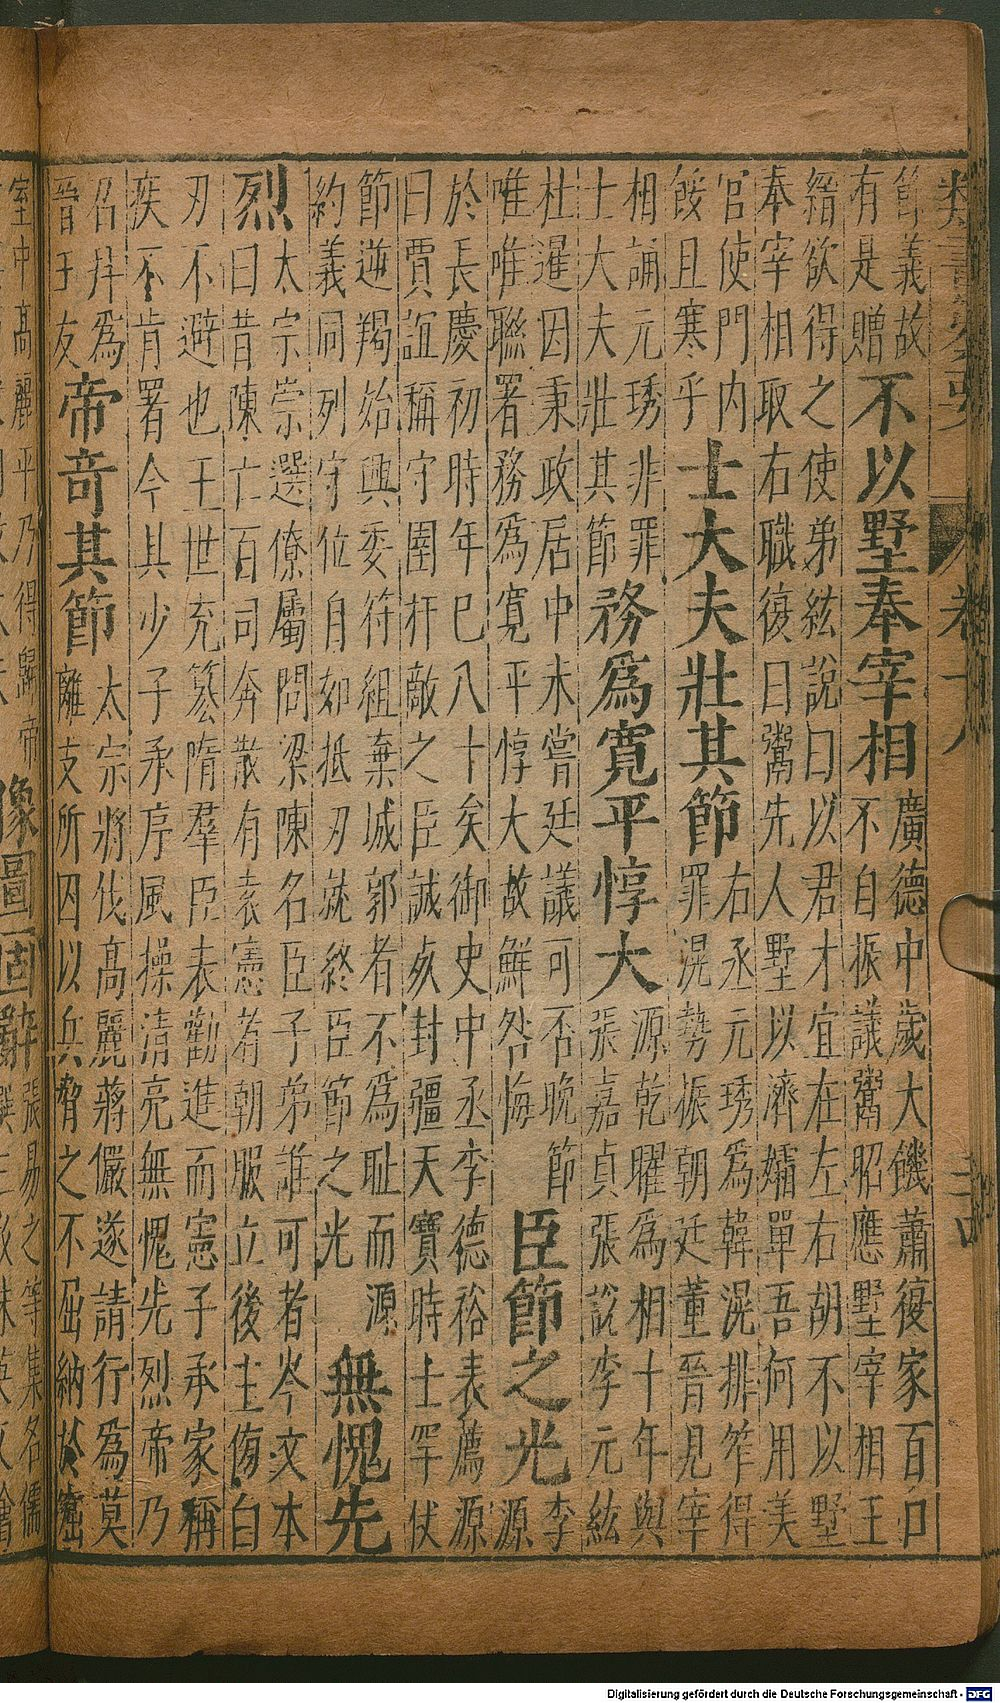 卷十八
節義故
有是贈
不以墅奉宰相
廣德中歲大饑蕭復家百口
不自振議鬻昭應墅宰相王
縉欲得之使弟紘說曰以君才宜在左右胡不以墅
奉宰相取右職復曰鬻先人墅以濟孀單吾何用美
官使門内
餒且寒乎
士大夫壯其節
右丞元琇爲韓滉排笮得
罪滉勢振朝廷董晉見宰
相誦元琇非罪
士大夫壯其節
務爲寬平惇大
源乾曜爲相十年與
張嘉貞張說李元紘
杜暹因秉政居中未嘗廷議可否晚節
唯唯聯署務爲寬平惇大故鮮咎悔
臣節之光
李
源
於長慶初時年巳八十矣御史中丞李德裕表薦源
曰賈誼稱守圉扞敵之臣誠死封疆天寶時士罕伏
節逆羯始興委符組棄城郭者不爲恥而源
約義同列守位自如抵刃就終臣節之光
無愧先
烈
太宗崇選僚屬問梁陳名臣子弟誰可者岑文本
曰昔陳亡百司奔散有袁憲者朝服立後主傍白
刃不避也王世充簒隋羣臣表勸進而憲子承家稱
疾不肯署今其少子承序風操清亮無愧先烈帝乃
召拜爲
晉王友
帝竒其節
太宗將伐高麗蔣儼遂請行爲莫
離支所囚以兵脅之不屈納於窟
室中高麗平乃得歸帝
張易之等集名儒
Digitalisierung gefördert durch die Deutsche Forschungsgemeinschaft - DFG